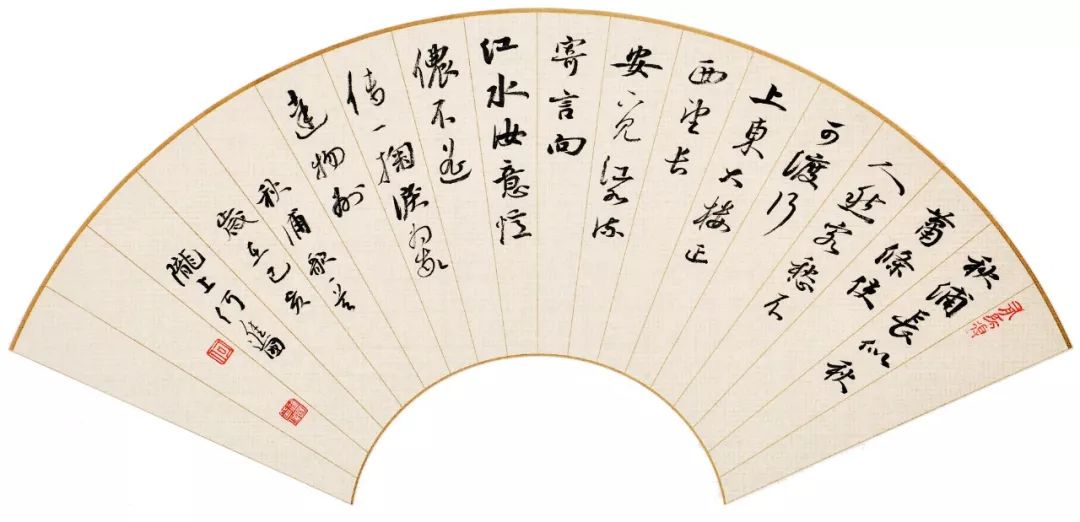 秋浦長似秋
蕭條使
人愁客愁不
可渡行
上東大樓正
西望長
安下見江水流
寄言向
江水汝意憶
儂不遥
傳一掬淚為我
達揚州
秋浦歌一首
歲在己亥
隴上何